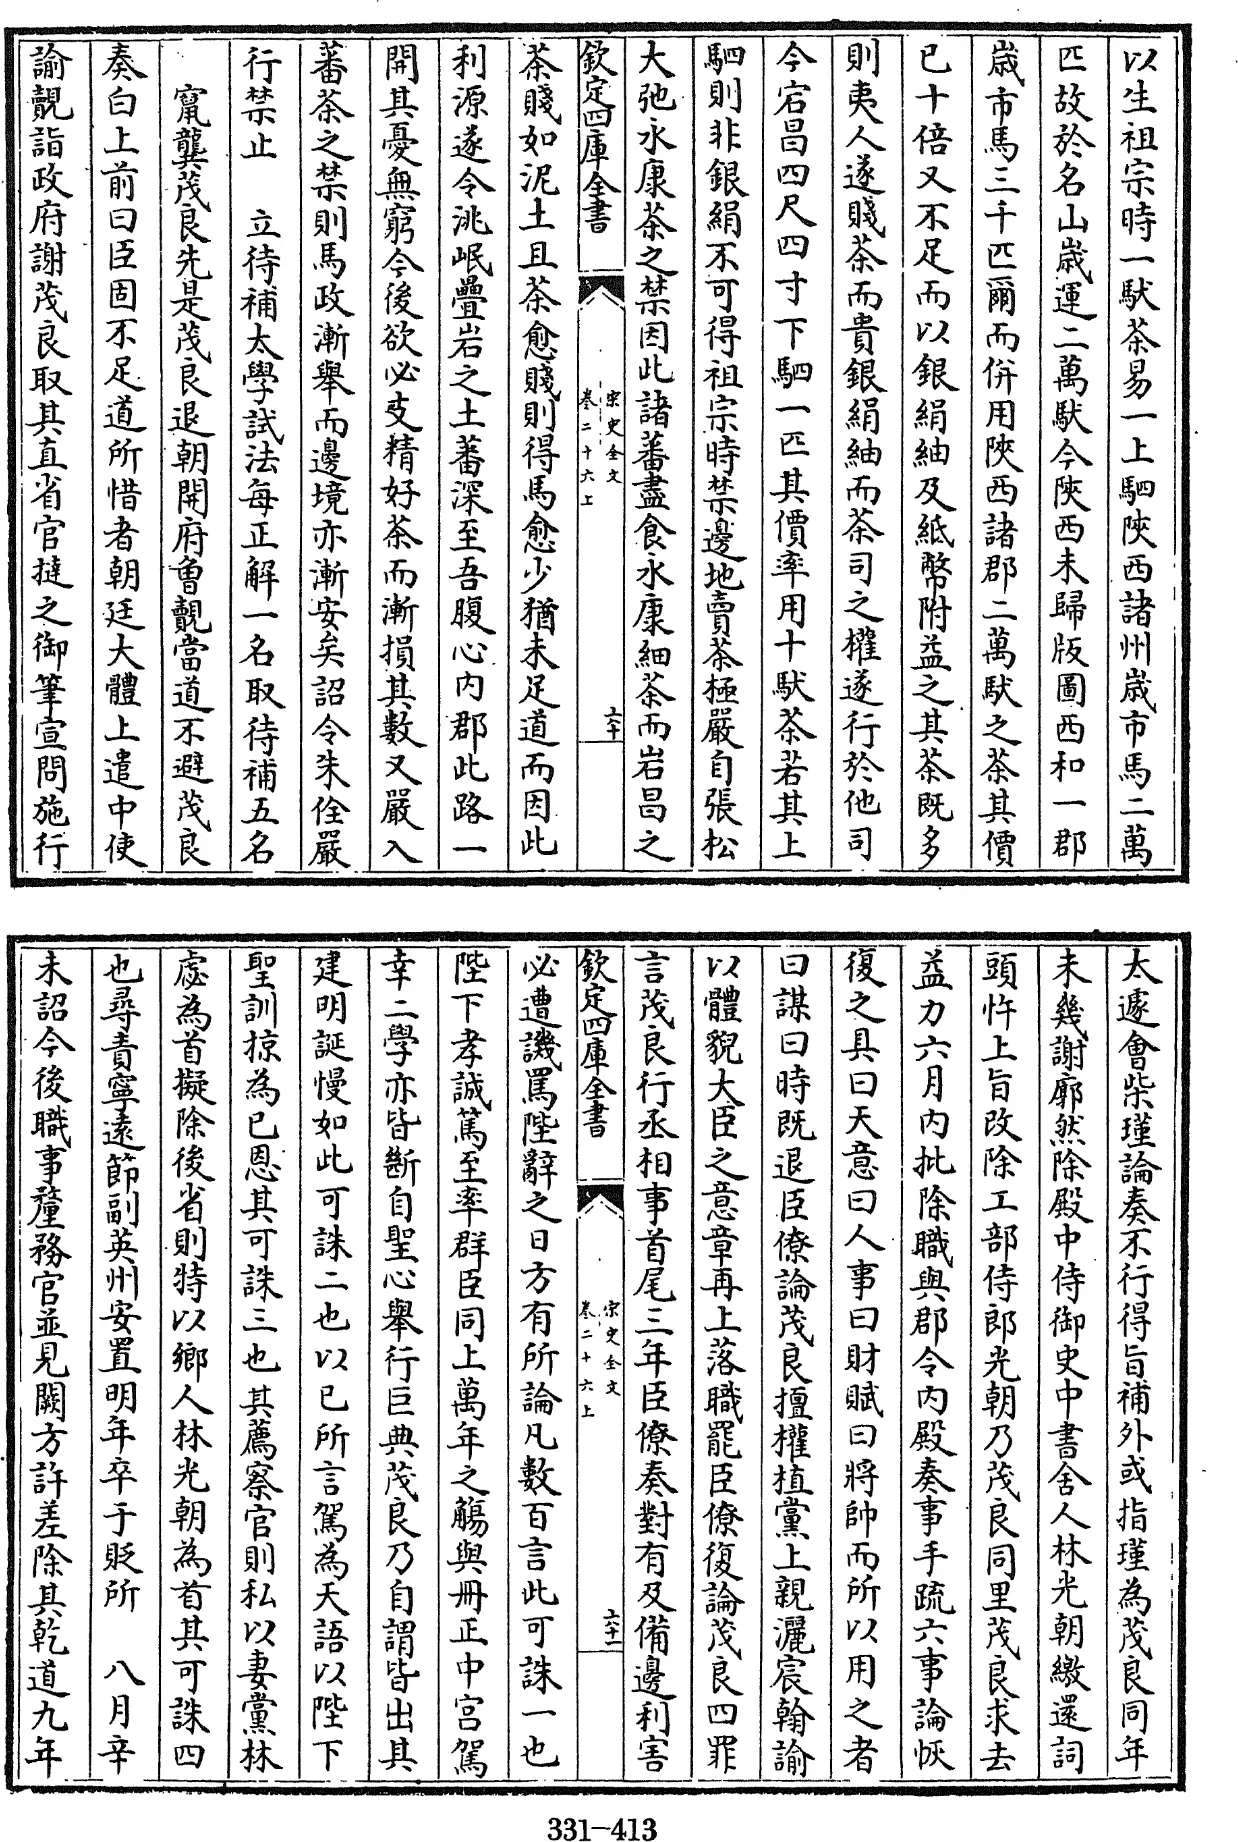 以生祖宗時一馱茶易一上駟陝西諸州嵗市馬二萬
匹故於名山嵗運二萬馱今陝西未歸版圖西和一郡
嵗市馬三千匹爾而併用陝西諸郡二萬馱之茶其價
已十倍又不足而以銀絹紬及紙幣附益之其茶既多
則夷人遂賤茶而貴銀絹紬而茶司之權遂行於他司
今宕昌四尺四寸下駟一匹其價率用十馱茶若其上
駟則非銀絹不可得祖宗時禁邊地賣茶極嚴自張松
大弛永康茶之禁因此諸蕃盡食永康細茶而岩昌之
欽定四庫全書
宋史全文
卷二十六上
六十
茶賤如泥土且茶愈賤則得馬愈少猶未足道而因此
利源遂令洮岷疊岩之土蕃深至吾腹心内郡此路一
開其憂無窮今後欲必支精好茶而漸損其數又嚴入
蕃茶之禁則馬政漸舉而邊境亦漸安矣詔令朱佺嚴
行禁止　立待補太學試法每正解一名取待補五名
竄龔茂良先是茂良退朝開府曾覿當道不避茂良
奏白上前曰臣固不足道所惜者朝廷大體上遣中使
諭覿詣政府謝茂良取其直省官撻之御筆宣問施行
太遽會柴瑾論奏不行得旨補外或指瑾為茂良同年
未幾謝廓然除殿中侍御史中書舍人林光朝繳還詞
頭忤上旨改除工部侍郎光朝乃茂良同里茂良求去
益力六月内批除職與郡令内殿奏事手疏六事論恢
復之具曰天意曰人事曰財賦曰將帥而所以用之者
曰謀曰時既退臣僚論茂良擅權植黨上親灑宸翰諭
以體貌大臣之意章再上落職罷臣僚復論茂良四罪
言茂良行丞相事首尾三年臣僚奏對有及備邊利害
欽定四庫全書
宋史全文
卷二十六上
六十一
必遭譏罵陛辭之日方有所論凡數百言此可誅一也
陛下孝誠篤至率群臣同上萬年之觴與冊正中宮駕
幸二學亦皆斷自聖心舉行巨典茂良乃自謂皆出其
建明誕慢如此可誅二也以已所言駕為天語以陛下
聖訓掠為已恩其可誅三也其薦察官則私以妻黨林
虙為首擬除後省則特以鄉人林光朝為首其可誅四
也尋責寧逺節副英州安置明年卒于貶所　八月辛
未詔今後職事釐務官並見闕方許差除其乾道九年
331-413